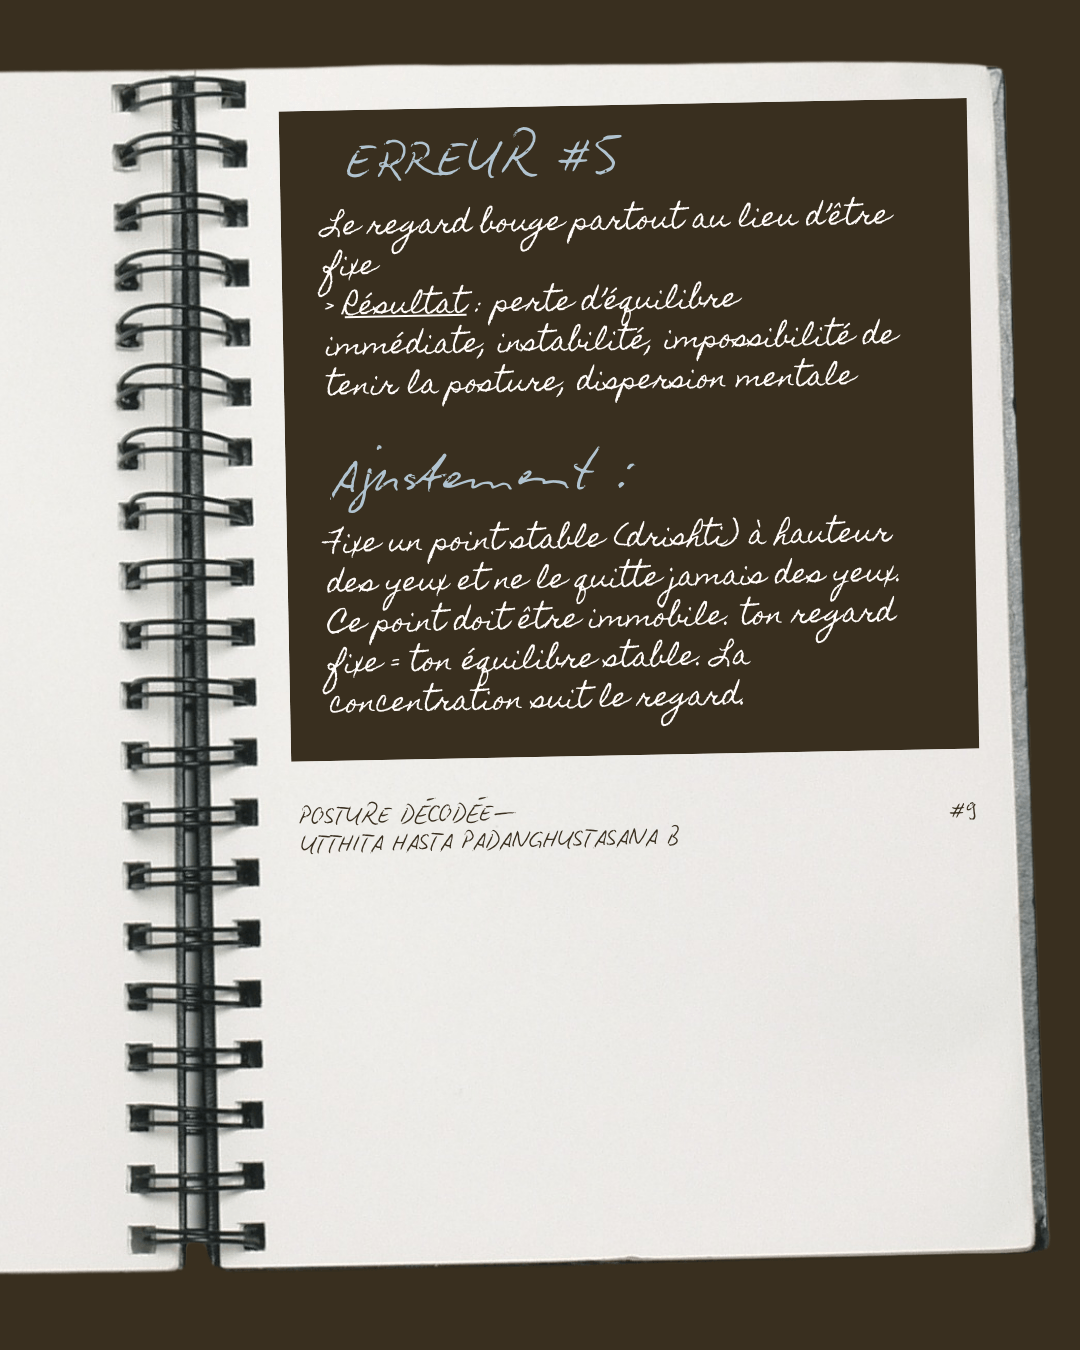 ERREUR #5
Le regard bouge partout au lieu d'être
fixe
> Résultat : perte d'équilibre
immédiate, instabilité, impossibilité de
tenir la posture, dispersion mentale
Ajustement :
Fixe un point stable (drishti) à hauteur
des yeux et ne le quitte jamais des yeux.
Ce point doit être immobile. ton regard
fixe = ton équilibre stable. La
concentration suit le regard.
POSTURE DÉCODÉE—
#9
UTTHITA HASTA PADANGHUSTASANA B